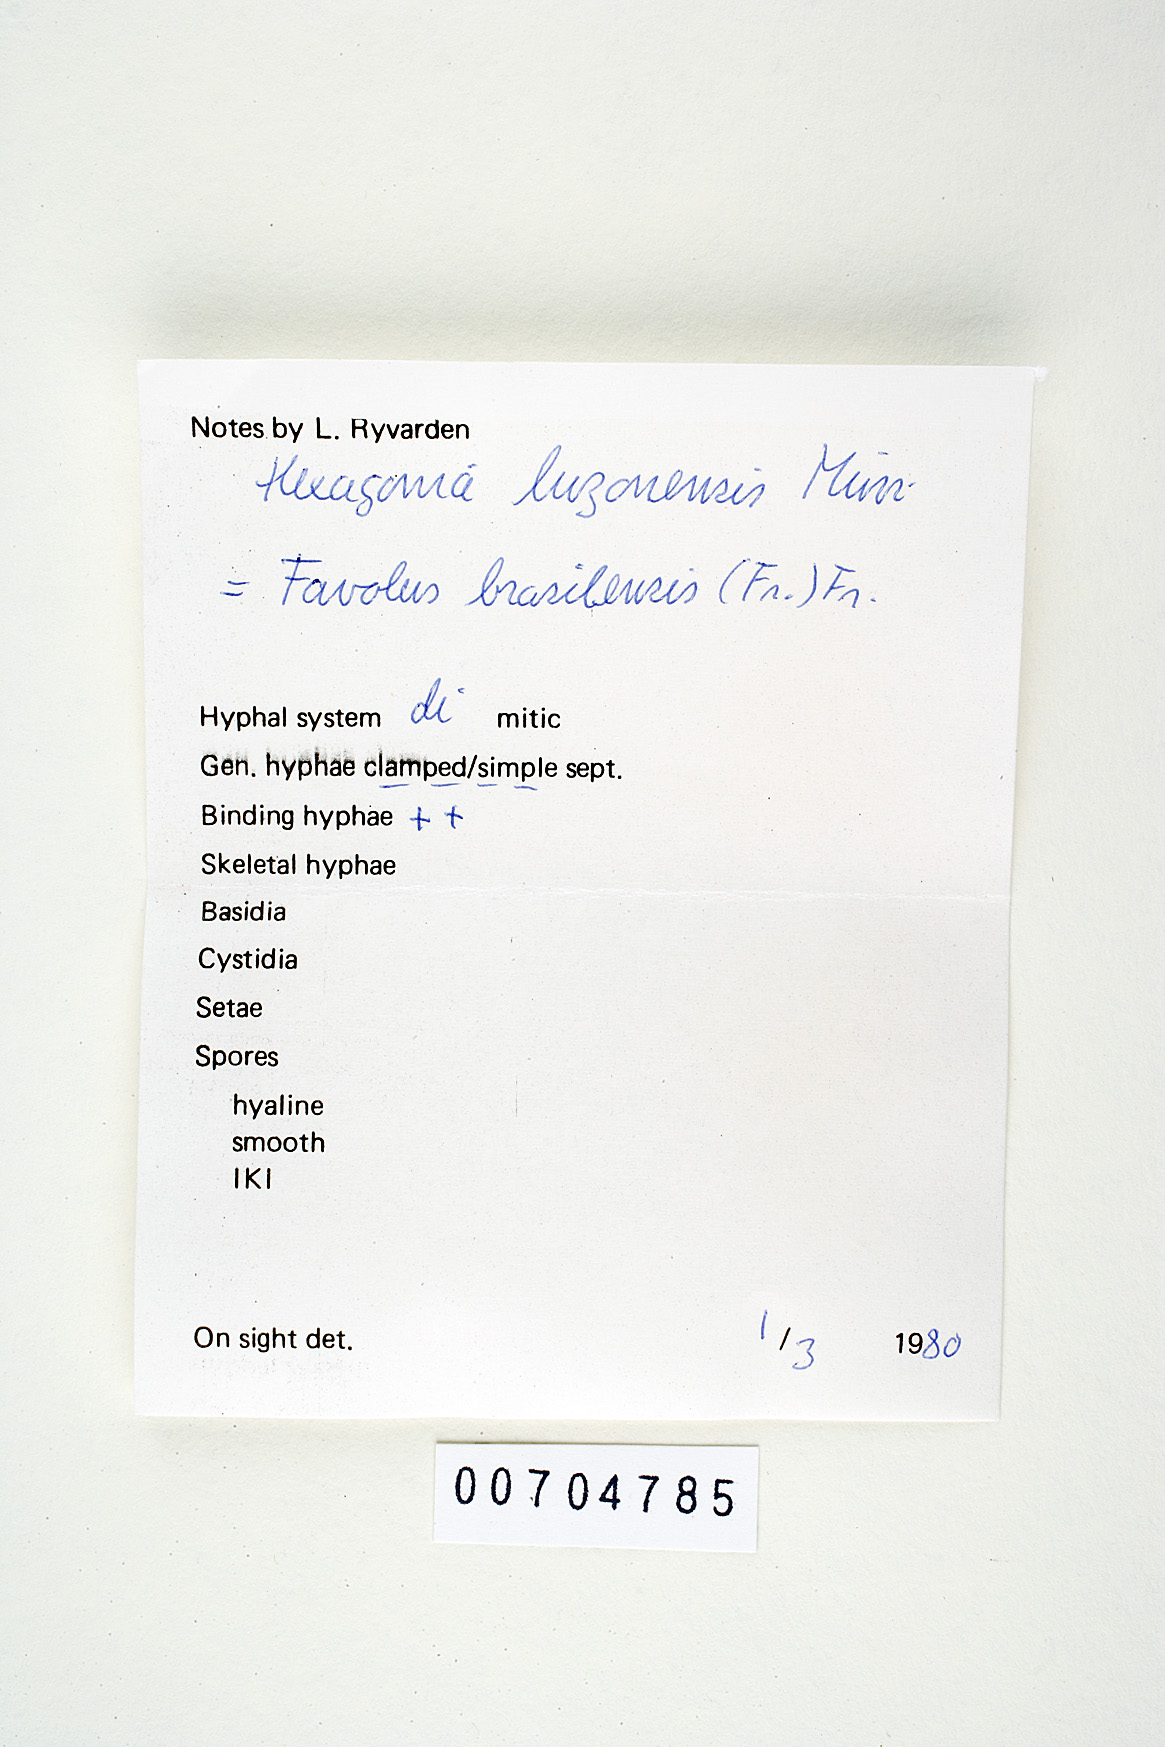 Notes by L. Ryvarden
Hexagonia luzonensis Murr.
= Favolus brasilensis (Fr.) Fr.
Hyphal system di mitic
Gen. hyphae clamped/simple sept.
Binding hyphae + +
Skeletal hyphae
Basidia
Cystidia
Setae
Spores
hyaline
smooth
IKI
On sight det. 1/3 1980
00704785